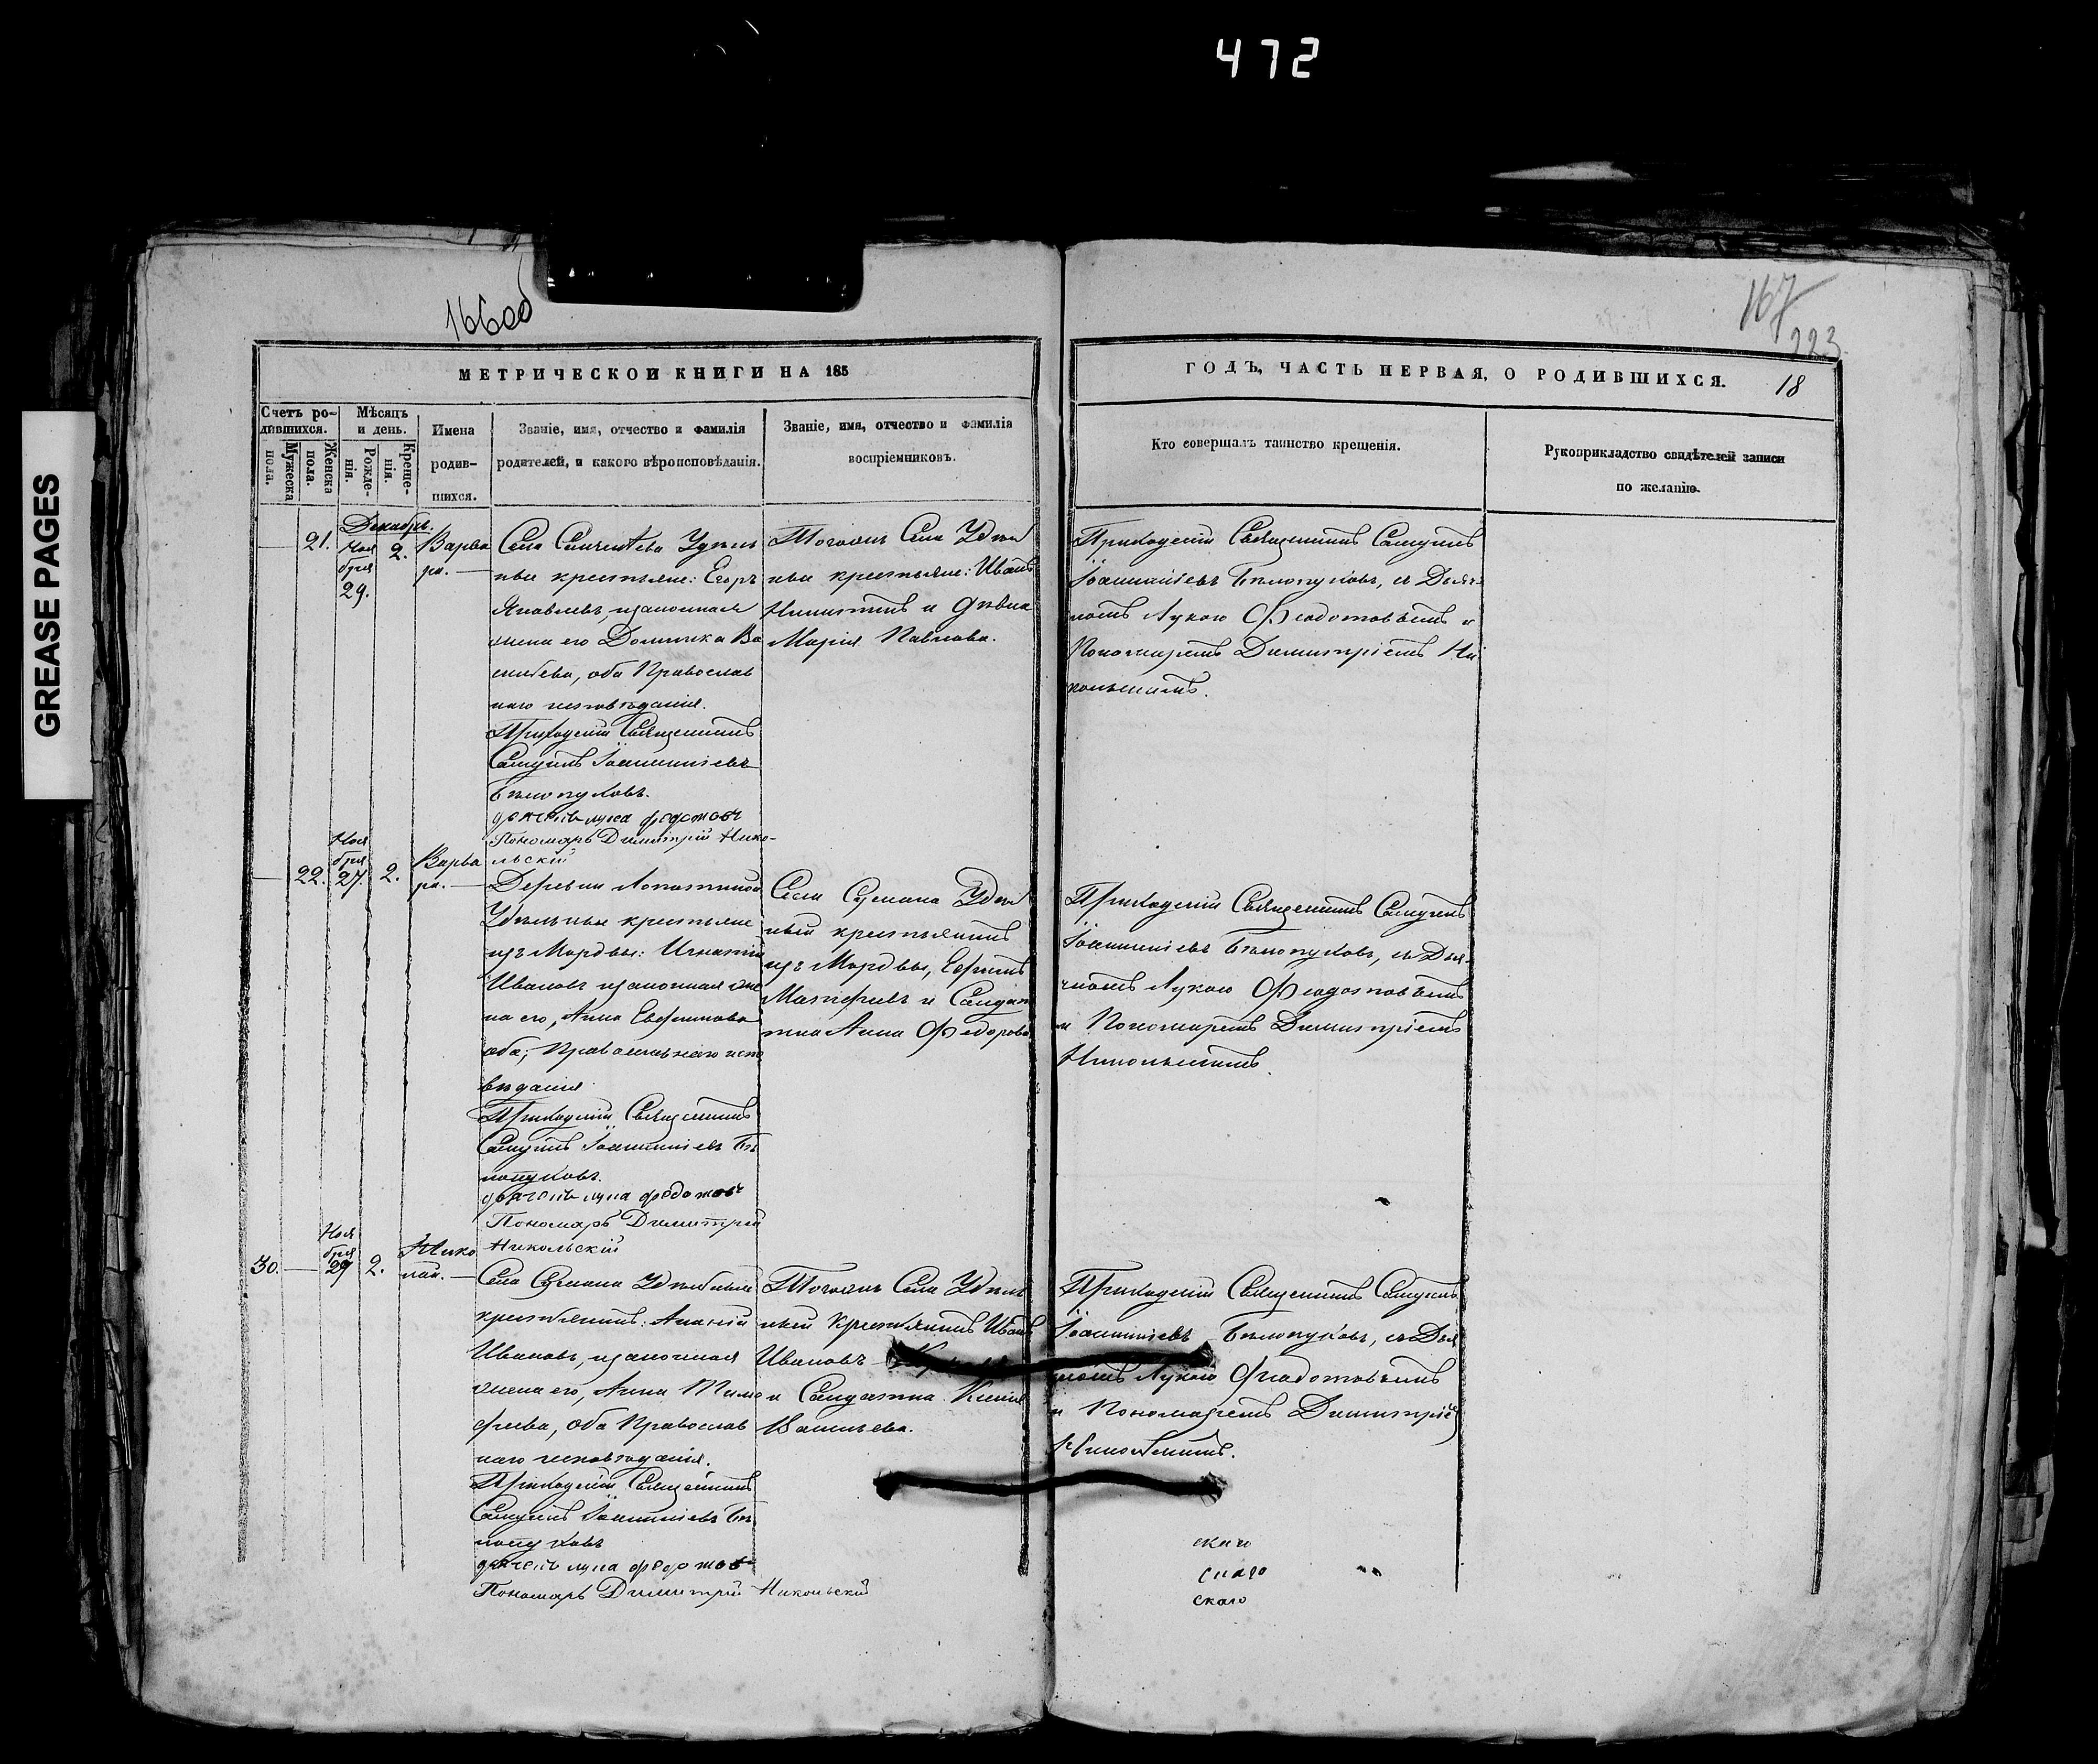 472
GREASE PAGES
166об
167
223
МЕТРИЧЕСКОЙ КНИГИ НА 185
ГОДЪ, ЧАСТЬ ПЕРВАЯ, О РОДИВШИХСЯ.
18
Счетъ ро-
дившихся.
Мужеска
пола.
Женска
пола.
Мѣсяцъ
и день.
Рожде-
нія.
Креще-
нія.
Имена
родив-
шихся.
Званіе, имя, отчество и фамилія
родителей, и какого вѣроисповѣданія.
Званіе, имя, отчество и фамилія
воспріемниковъ.
Кто совершалъ таинство крещенія.
Рукоприкладство свидѣтелей записи
по желанію.
Декабрь.
21.
Ноя
бря
29.
2.
Варва
ра.
Села Удѣль
ные крестьяне: Егоръ
Яковлевъ, изаконная
жена его Домника Ва
сильева, оба Православ
наго исповѣданія.
Приходскій Священникъ
Самуилъ Іоанніевъ
Бѣлопуховъ.
дьячекъ лука федотовъ
Пономарь Димитрій Нико-
льскій
Тогожъ Села Удѣль
ные крестьяне: Иванъ
Никитинъ и дѣвка
Марія Павлова.
Приходскій Священникъ Самуилъ
Іоанніевъ Бѣлопуховъ, съ Дьяч
комъ Лукою Феодотовымъ и
Пономаремъ Димитріемъ Ни
кольскимъ.
22.
Ноя
бря
27.
2.
Варва
ра.
Деревни Лопатиной
Удѣльные крестьяне
изъ Мордвы: Игнатій
Ивановъ изаконная же
на его, Анна Евфимова
оба, Православнаго испо
вѣданія
Приходскій Священникъ
Самуилъ Іоанніевъ Бѣ
лопуховъ.
дьячекъ лука федотовъ
Пономарь Димитрій
Никольскій
Села Удѣль
ный крестьянинъ
изъ Мордвы, Ефимъ
Матфеевъ и Солдат
тка Анна Федорова
Приходскій Священникъ Самуилъ
Іоанніевъ Бѣлопуховъ, съ Дья-
чкомъ Лукою Феодотовымъ
и Пономаремъ Димитріемъ
Никольскимъ.
30.
Ноя
бря
29
2.
Нико
лай.
Села Удѣльные
крестьянинъ: Ананій
Ивановъ, изаконная
жена его, Анна Тимо
феева, оба Православ
наго исповѣданія.
Приходскій Священникъ
Самуилъ Іоанніевъ Бѣ
лопуховъ
дьячекъ лука федотовъ
Пономарь Димитрій Никольскій
Тогожъ Села Удѣль
ный Крестьянинъ Иванъ
Ивановъ
и Солдатка Ксенія
Васильева.
Приходскій Священникъ Самуилъ
Іоанніевъ Бѣлопуховъ, съ Дья
чкомъ Лукою Феодотовымъ
и Пономаремъ Димитріем
Никольскимъ.
скаго
скаго
скаго